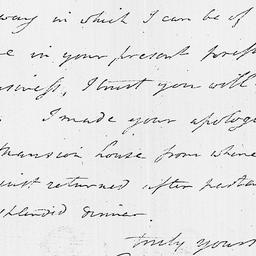 way in which I can be of
in your present press
business, I trust you will
I made your apologi
Mansion House from whence
just returned after partak
splendid dinner.
truly yours